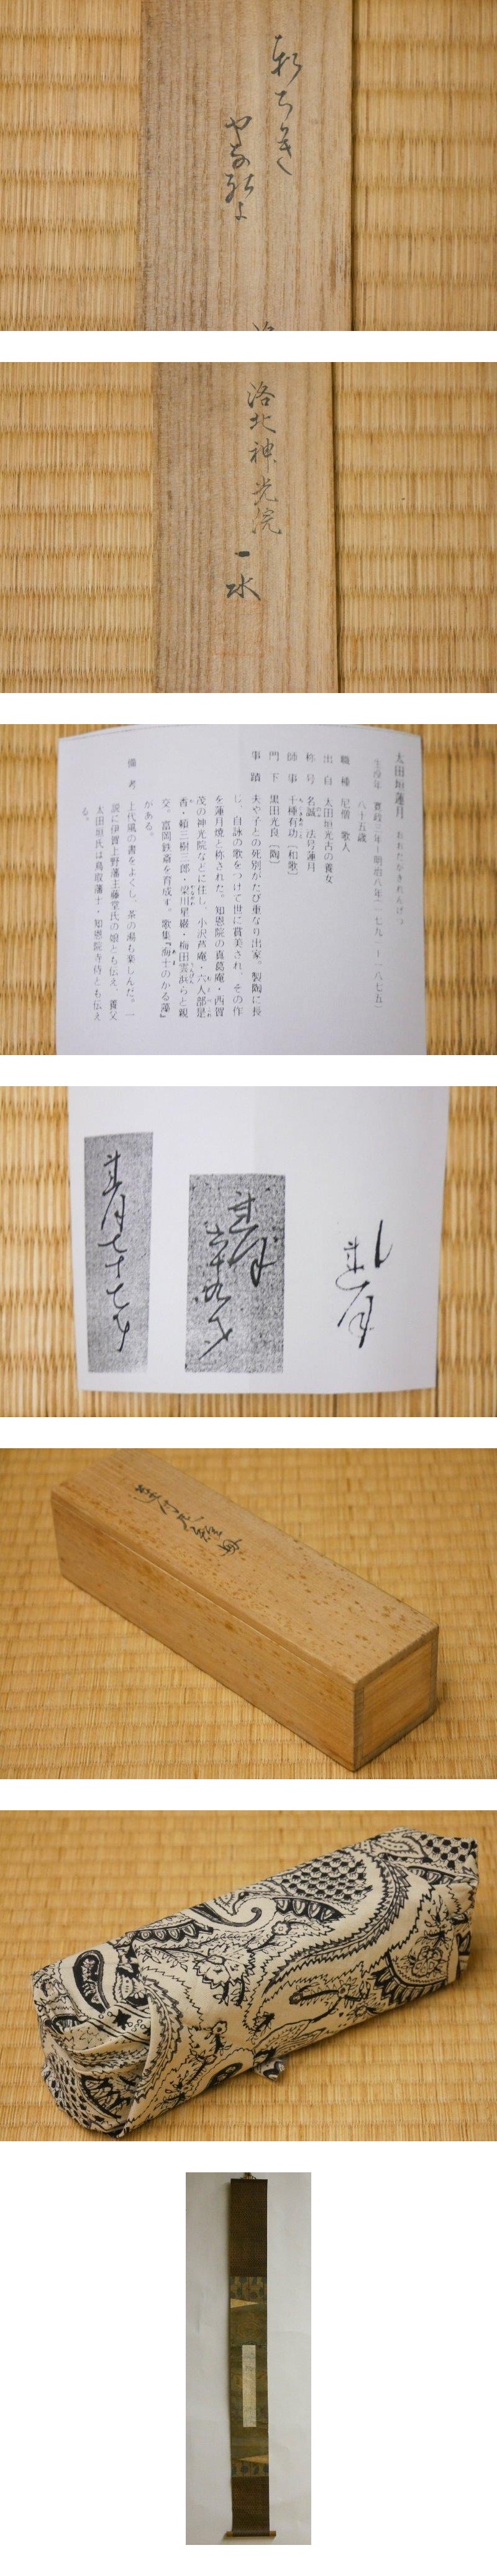 洛北神光院
一水
太田垣蓮月 おおたがきれんげつ
生没年 寛政三年―明治八年(一七九一―一八七五)
八十五歳
職種 尼僧 歌人
出自 太田垣光古の養女
称号 名誠 法号蓮月
師事 千種有功〔和歌〕
門下 黒田光良〔陶〕
事蹟 夫や子との死別がたび重なり出家。製陶に長
し、自詠の歌をつけて世に賞美され、その作
を蓮月焼と称された。知恩院の真葛庵・西賀
茂の神光院などに住し、小沢芦庵・六人部是
香・頼三樹三郎・梁川星巌・梅田雲浜らと親
交。富岡鉄斎を育成す。歌集『海士のかる藻』
がある。
備考 上代風の書をよくし、茶の湯も楽しんだ。一
説に伊賀上野藩主藤堂氏の娘とも伝え、養父
太田垣氏は鳥取藩士・知恩院寺侍とも伝え
る。
蓮月
蓮月
六十九才
蓮月七十七才